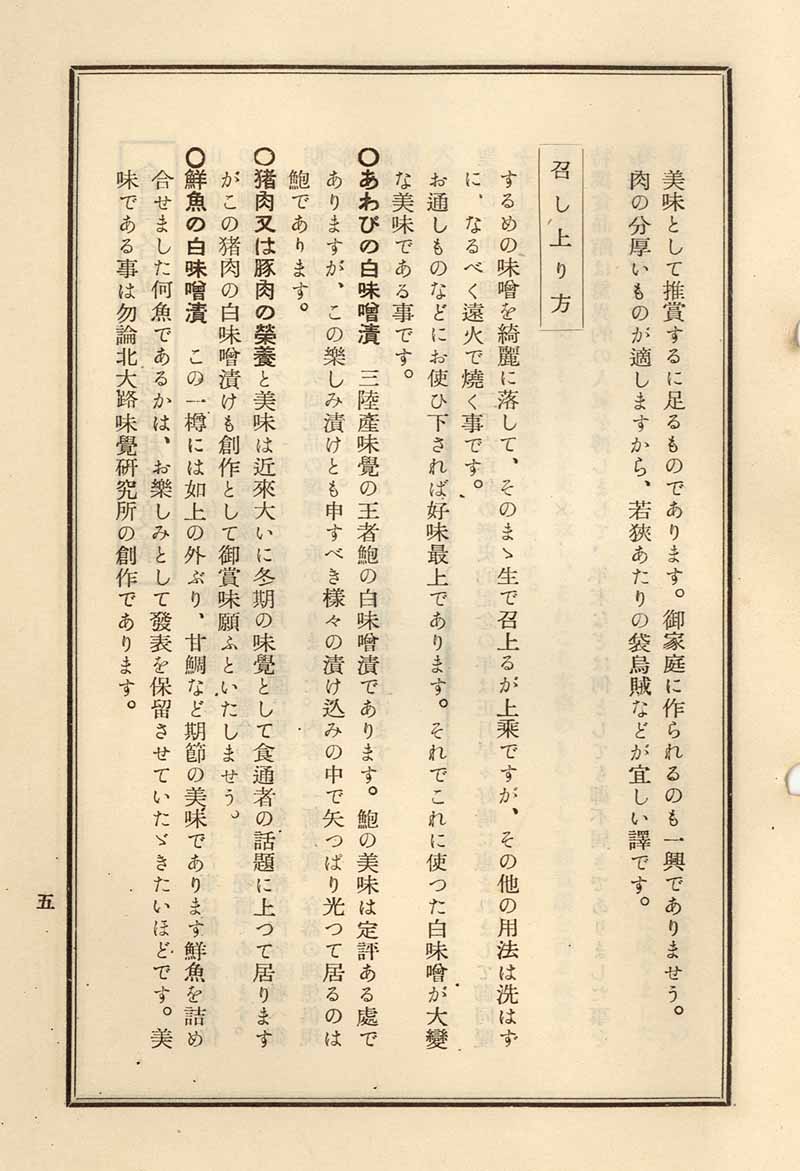 美味として推賞するに足るものであります。御家庭に作られるのも一興でありませう。
肉の分厚いものが適しますから、若狹あたりの袋烏賊などが宜しい譯です。
召し上り方
するめの味噌を綺麗に落して、そのまゝ生で召上るが上乘ですが、その他の用法は洗はず
に、なるべく遠火で燒く事です。
お通しものなどにお使ひ下されば好味最上であります。それでこれに使つた白味噌が大變
な美味である事です。
〇あわびの白味噌漬　三陸產味覺の王者鮑の白味噌漬であります。鮑の美味は定評ある處で
ありますが、この樂しみ漬けとも申すべき樣々の漬け込みの中で矢つぱり光つて居るのは
鮑であります。
〇猪肉又は豚肉の榮養と美味は近來大いに冬期の味覺として食通者の話題に上つて居ります
がこの猪肉の白味噌漬けも創作として御賞味願ふといたしませう。
〇鮮魚の白味噌漬　この一樽には如上の外ぶり、甘鯛など期節の美味であります鮮魚を詰め
合せました何魚であるかは、お樂しみとして發表を保留させていたゞきたいほどです。美
味である事は勿論北大路味覺研究所の創作であります。
五